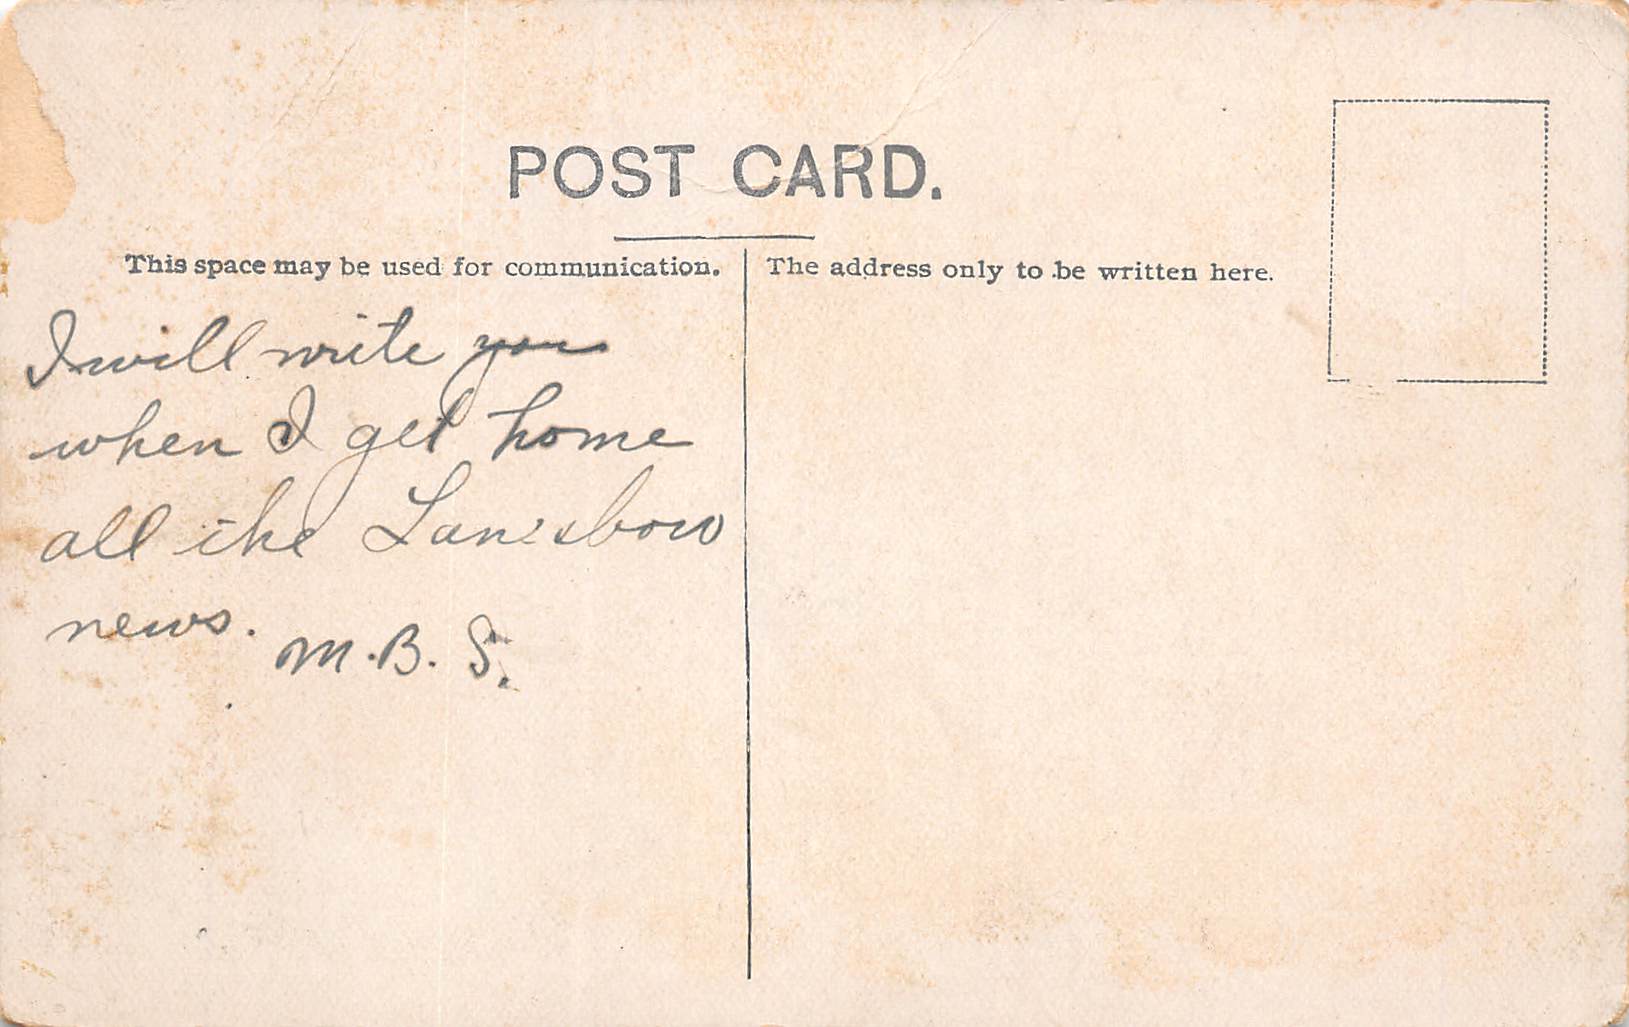 POST CARD.
This space may be used for communication.
The address only to be written here.
I will write you
when I get home
all the Lanesboro
news.
M. B. S.